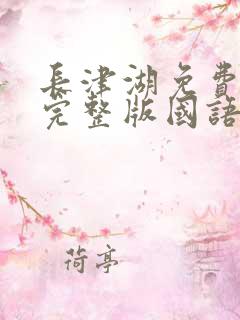 長津湖免費
完整版國語
荷亭